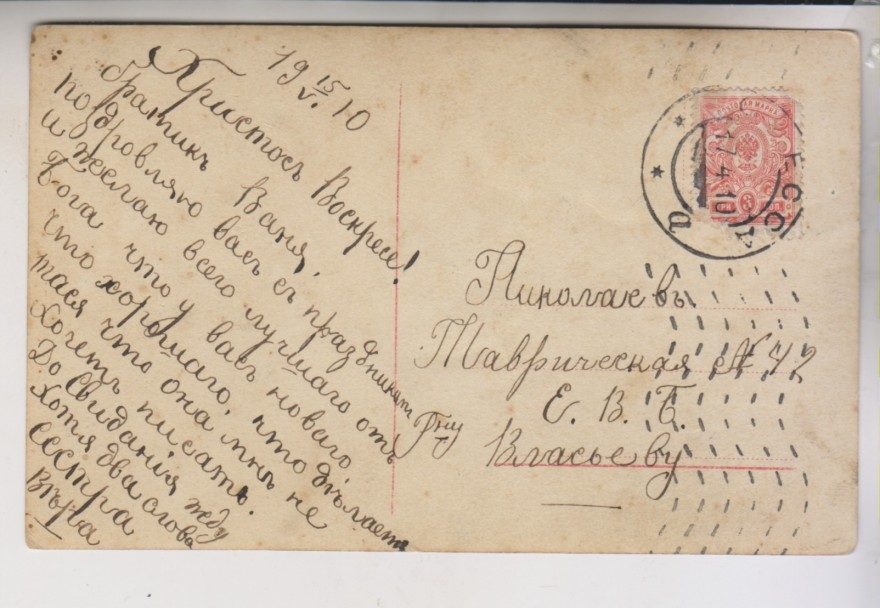 19 15/V. 10
Христосъ Воскресе!
братикъ Ваня,
поздровляю васъ съ праздникам
и желаю всего лучшаго отъ
бога что у васъ новаго
что хорошаго, что дѣлаетъ
тася что она мнѣ не
хочетъ писать.
До свиданія жду
хотя два слова
сестра
Вѣра
Николаевъ.
Таврическая № 42
Е. В. Б.
Гну
Власьеву
ПОЧТОВАЯ МАРКА
3
ТРИ КОП.
ОДЕССА
17 4 10